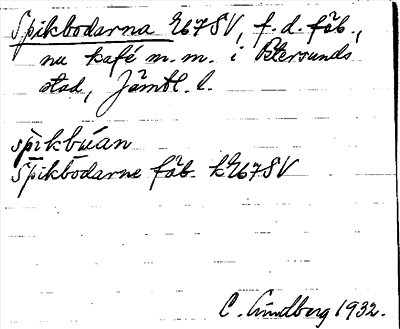 Spikbodarna Z67SV, f.d. fäb.,
nu kafé m.m. i Östersunds
stad, Jämtl. l.
spikbúan
Spikbodarne fäb. kZ67SV
C. Lindberg 1932.